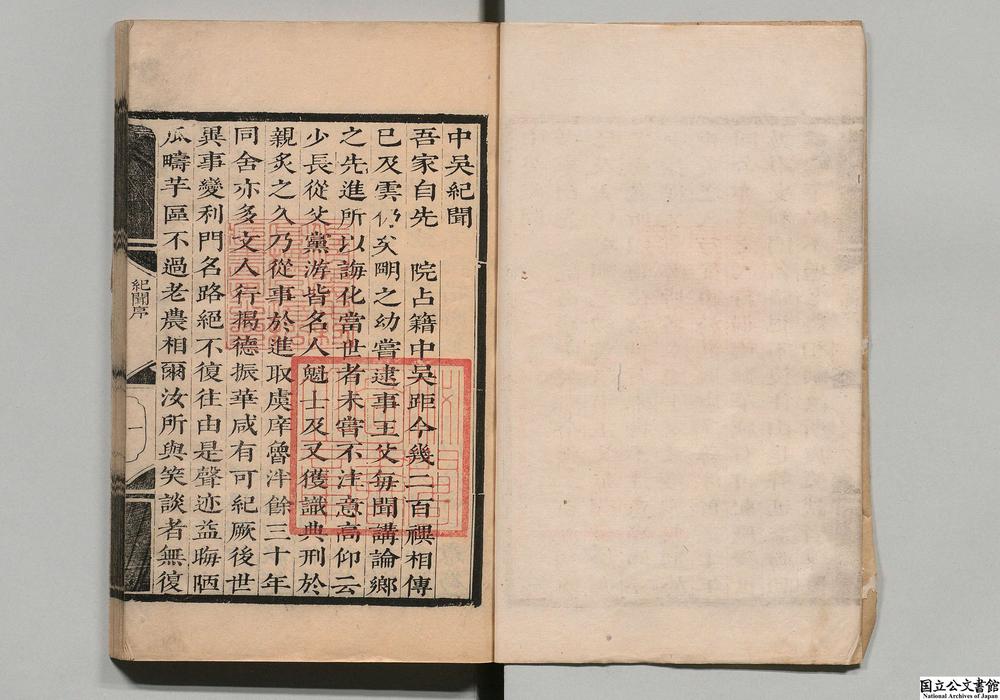 中吳紀聞
吾家自先 院占籍中吳距今幾二百禩相傳
已及雲仍矣明之幼嘗逮事王父每聞講論鄉
之先進所以誨化當世者未嘗不注意高仰云
少長從父黨游皆名人魁士及又獲識典刑於
親炙之久乃從事於進取虞庠魯泮餘三十年
同舍亦多文人行揭德振華咸有可紀厥後世
異事變利門名路絕不復往由是聲迹益晦陋
瓜疇芋區不過老農相爾汝所與笑談者無復
紀聞序
一
国立公文書館
National Archives of Japan